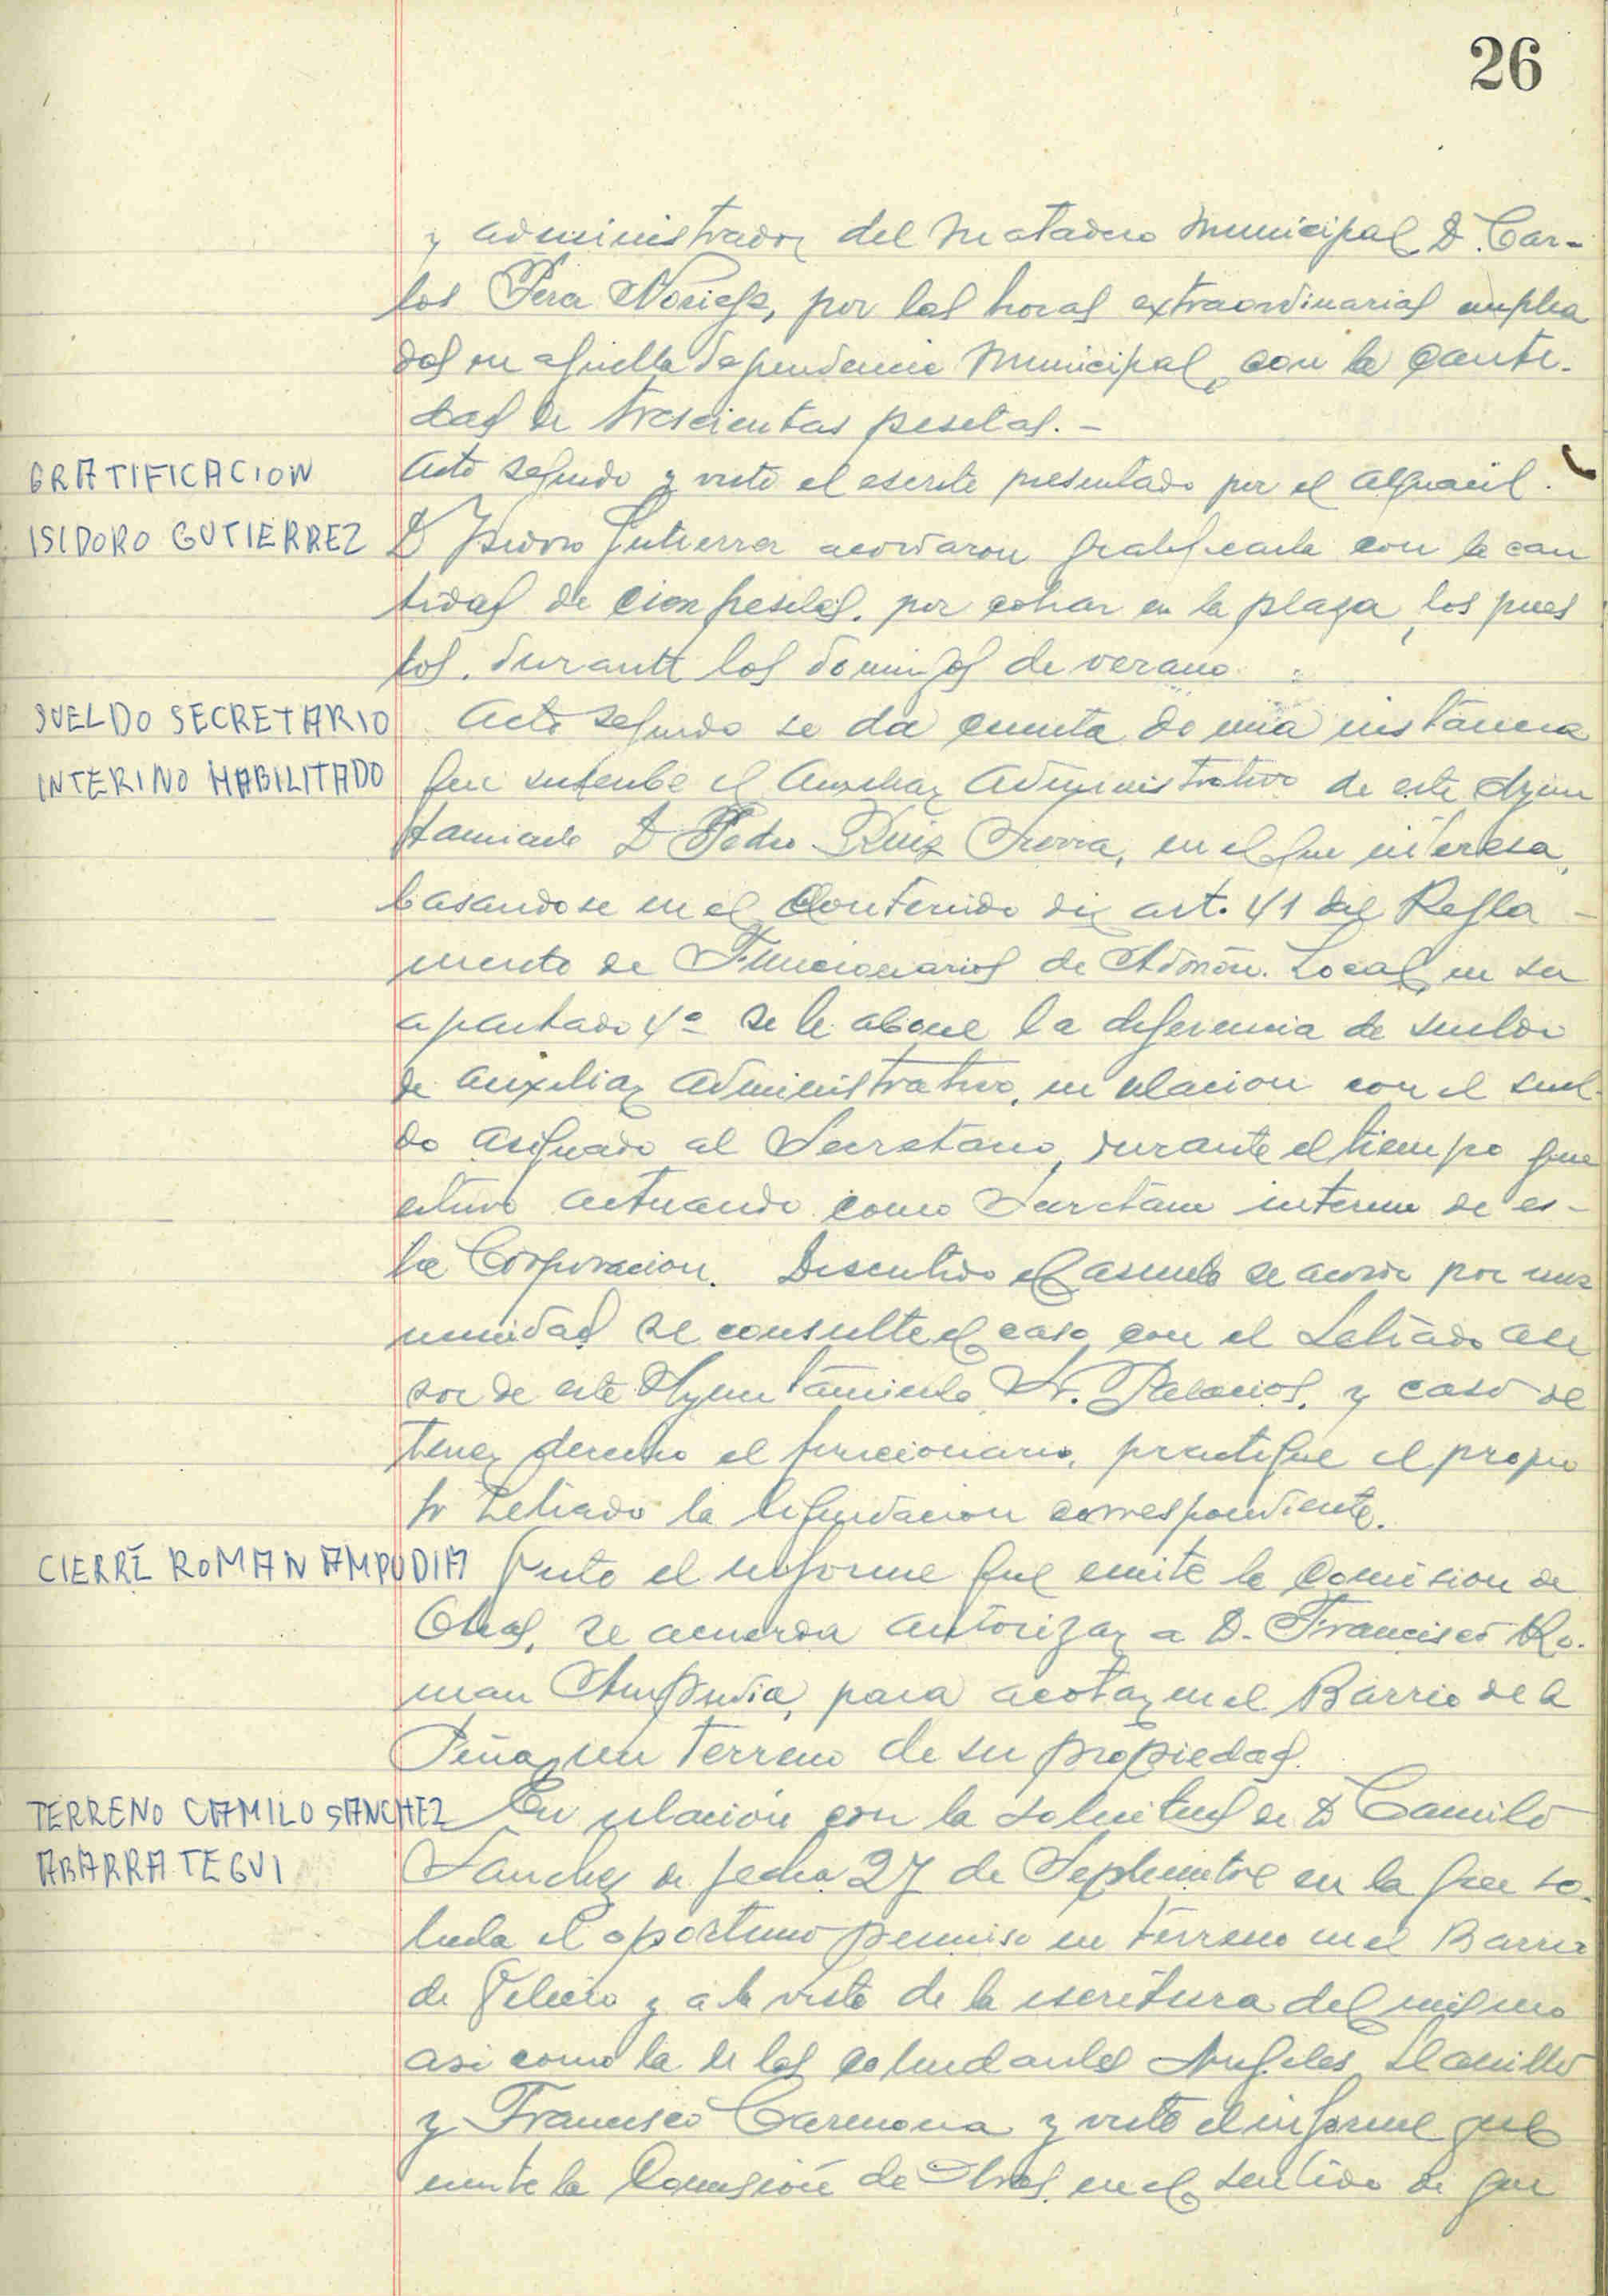 26
y administrador del Matadero Municipal D. Car-
los Pera Noriega, por las horas extraordinarias emplea
das en aquella dependencia Municipal, con la canti-
dad de trescientas pesetas.-
GRATIFICACION
Acto seguido y visto el escrito presentado por el alguacil
ISIDORO GUTIERREZ
D Isidoro Gutierrez acordaron gratificarle con la can
tidad de cien pesetas. por cobrar en la plaza, los pues
tos. durante los domingos de verano
SUELDO SECRETARIO
Acto seguido se da cuenta de una instancia
INTERINO HABILITADO
que suscribe el Auxiliar Administrativo de este Ayun
tamiento D Pedro Ruiz, en el que interesa,
basandose en el contenido del art. 41 del Regla-
mento de Funcionarios de Admón. Local, en su
apartado 4º se le abone la diferencia de sueldo
de Auxiliar Administrativo, en relacion con el suel-
do asignado al Secretario, durante el tiempo que
estuvo actuando como Secretario interino de es-
ta Corporacion. Discutido el asunto se acordo por una
nimidad se consulte el caso con el Letrado ase
sor de este Ayuntamiento Sr. Palacios, y caso de
tener derecho el funcionario, practique el propio
Sr Letrado la liquidacion correspondiente.
CIERRE ROMAN AMPUDIA
Visto el informe que emite la Comision de
Obras, se acuerda autorizar a D. Francisco Ro-
man Ampudia, para acotar en el Barrio de la
Peña, un terreno de su propiedad.
TERRENO CAMILO SANCHEZ
En relación con la solicitud de D Camilo
ABARRATEGUI
Sanchez de fecha 27 de Septiembre en la que so-
licita el oportuno permiso en terreno en el Barrio
de y a la vista de la escritura del mismo
asi como la de los colindantes Angeles Llamillo
y Francisco Carmona y visto el informe que
emite la Comisión de Obras, en el sentido de que